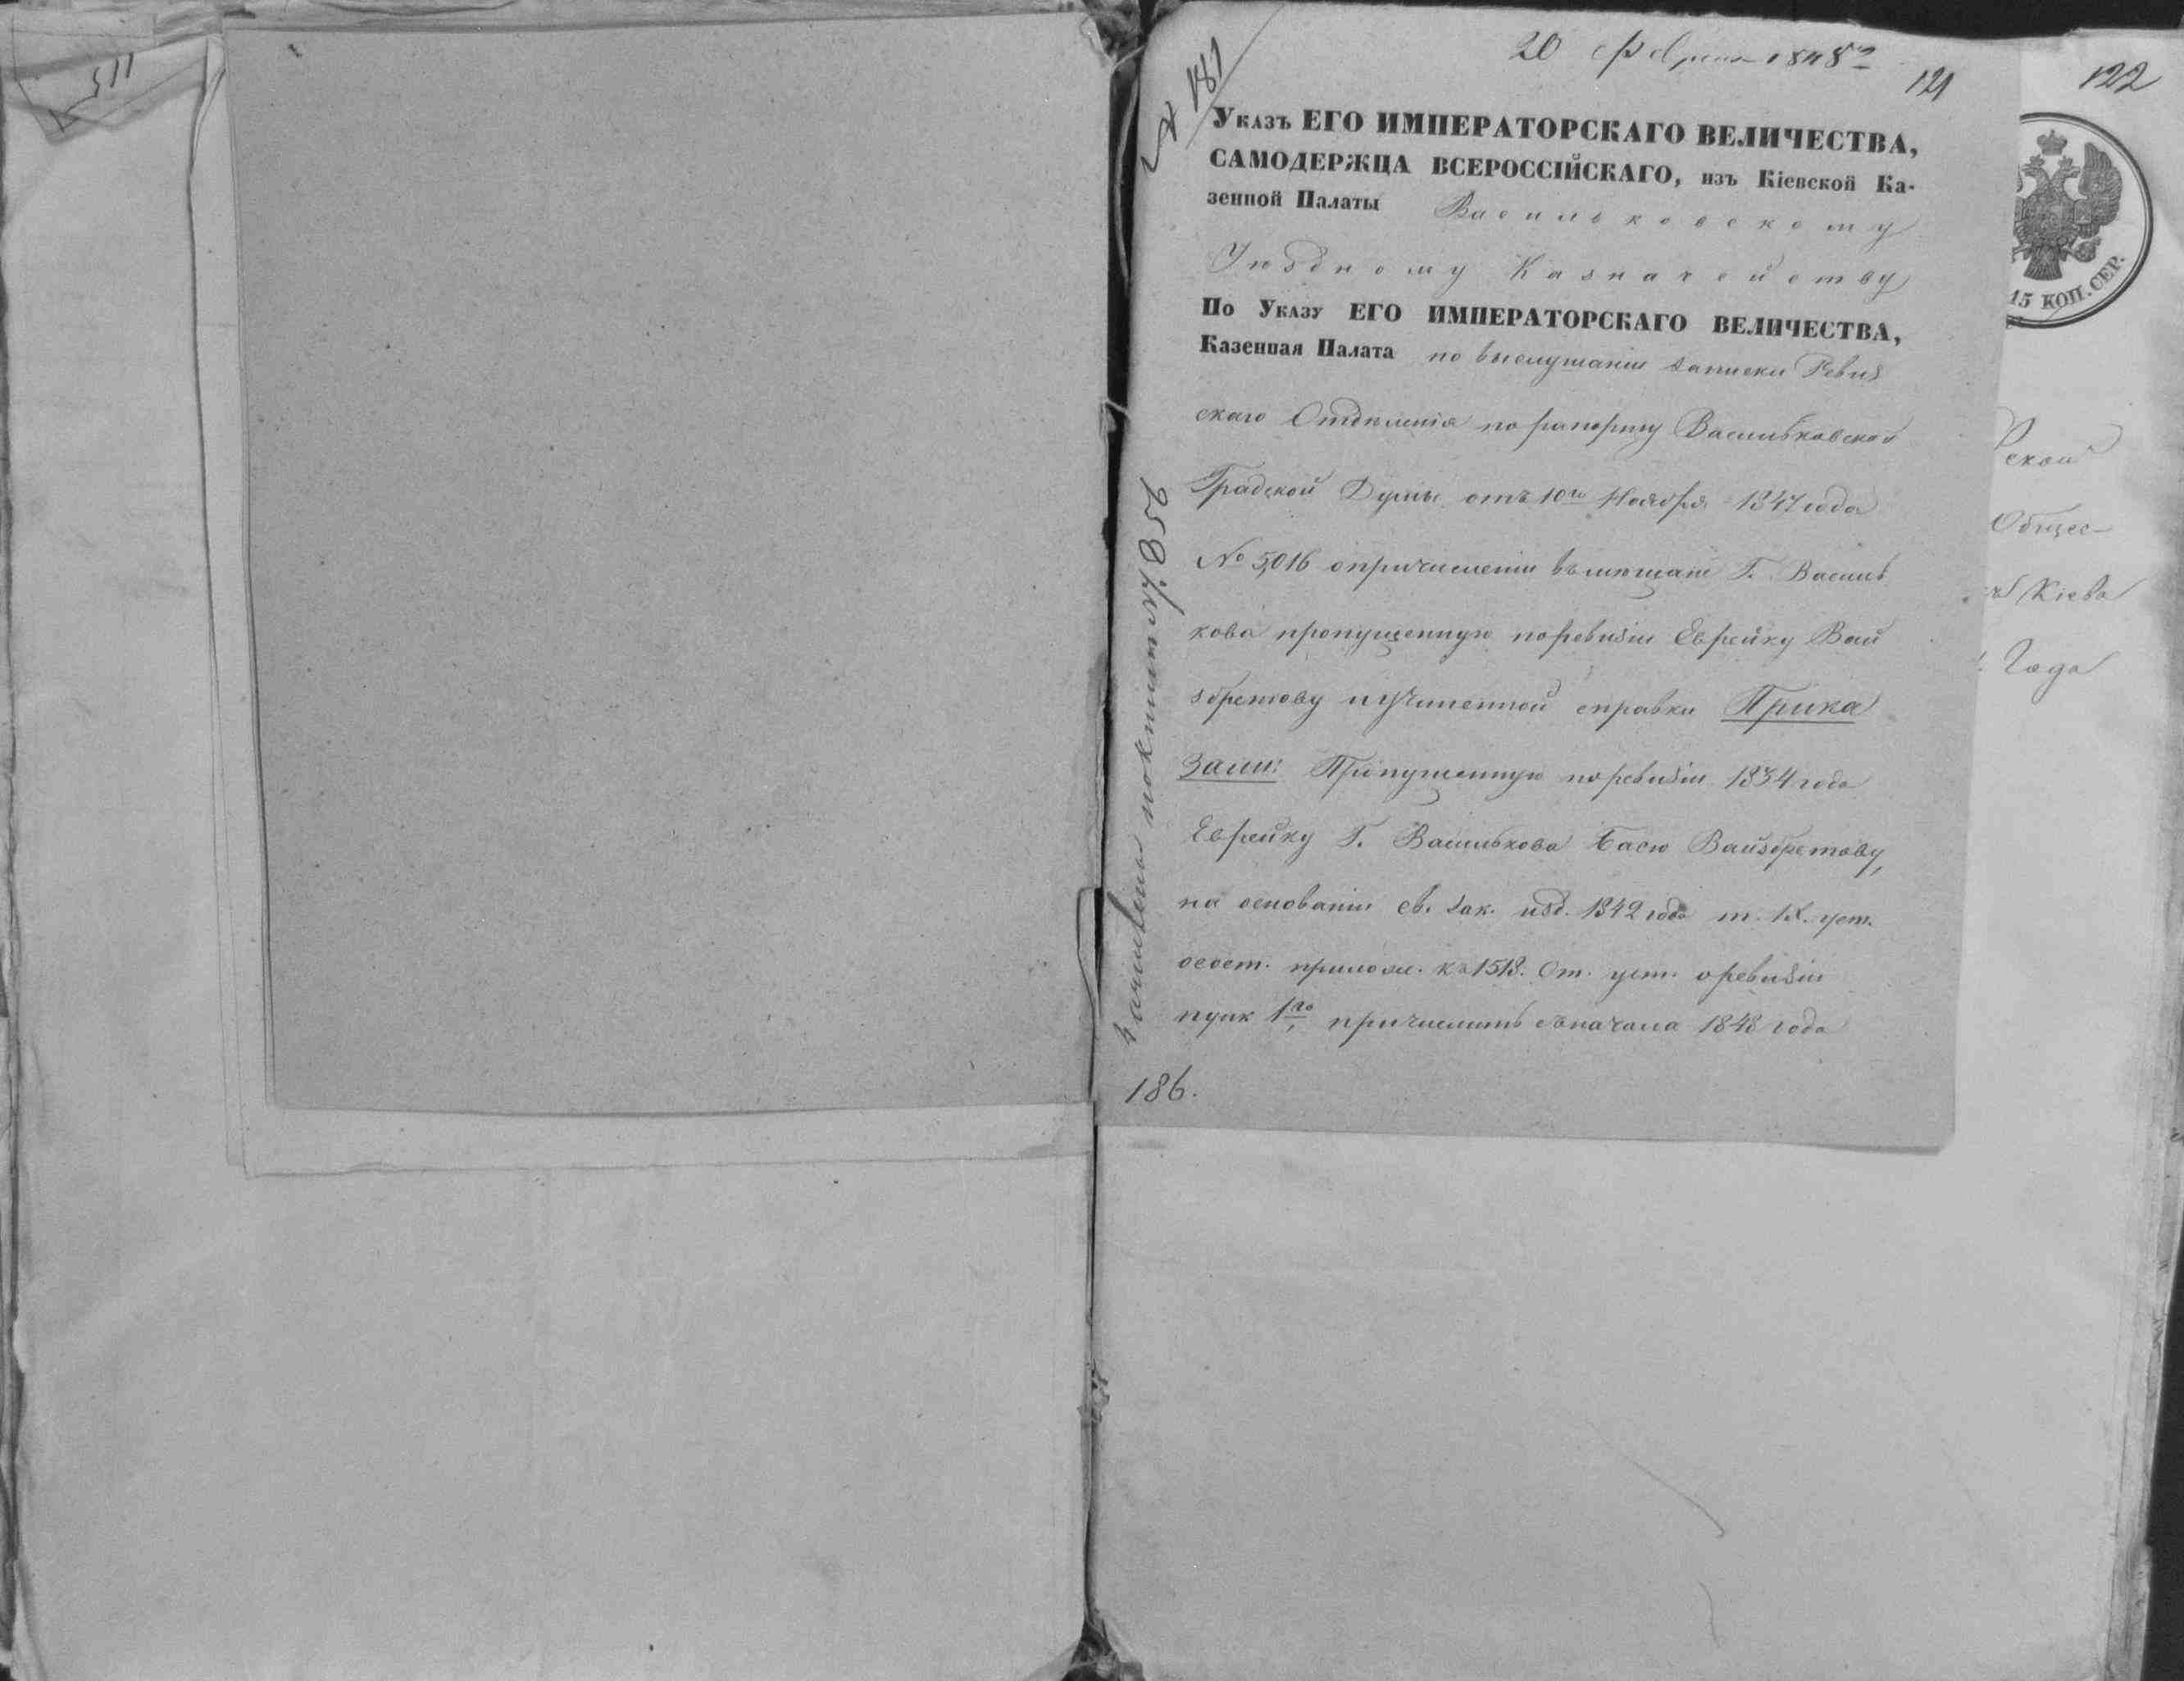 115
20 Февраля 1848 г
№ 181
121
Указъ ЕГО ИМПЕРАТОРСКАГО ВЕЛИЧЕСТВА,
САМОДЕРЖЦА ВСЕРОССІЙСКАГО, изъ Кіевской Ка-
зенной Палаты Васильковскому
Уѣздному Казначейству
По Указу ЕГО ИМПЕРАТОРСКАГО ВЕЛИЧЕСТВА,
Казенная Палата по выслушаніи записки Ревиз
скаго Отдѣленія по рапорту Васильковской
Градской Думы отъ 10го Ноября 1847 года
№ 5,016 о причисленіи въ мѣщане Г. Василь
кова пропущенную по ревизіи Еврейку Вай
збретову и учиненной справки Прика
зали: Пропущенную по ревизіи 1834 года
Еврейку Г. Василькова Басю Вайзбретову,
на основаніи св. зак. изд. 1842 года т. IX. уст.
о сост. прилож. къ 1518. ст. уст. о ревизіи
пунк 1го, причислить съ начала 1848 года
186.
122
15 КОП. СЕР.
ской
Общес-
Кіева
Года